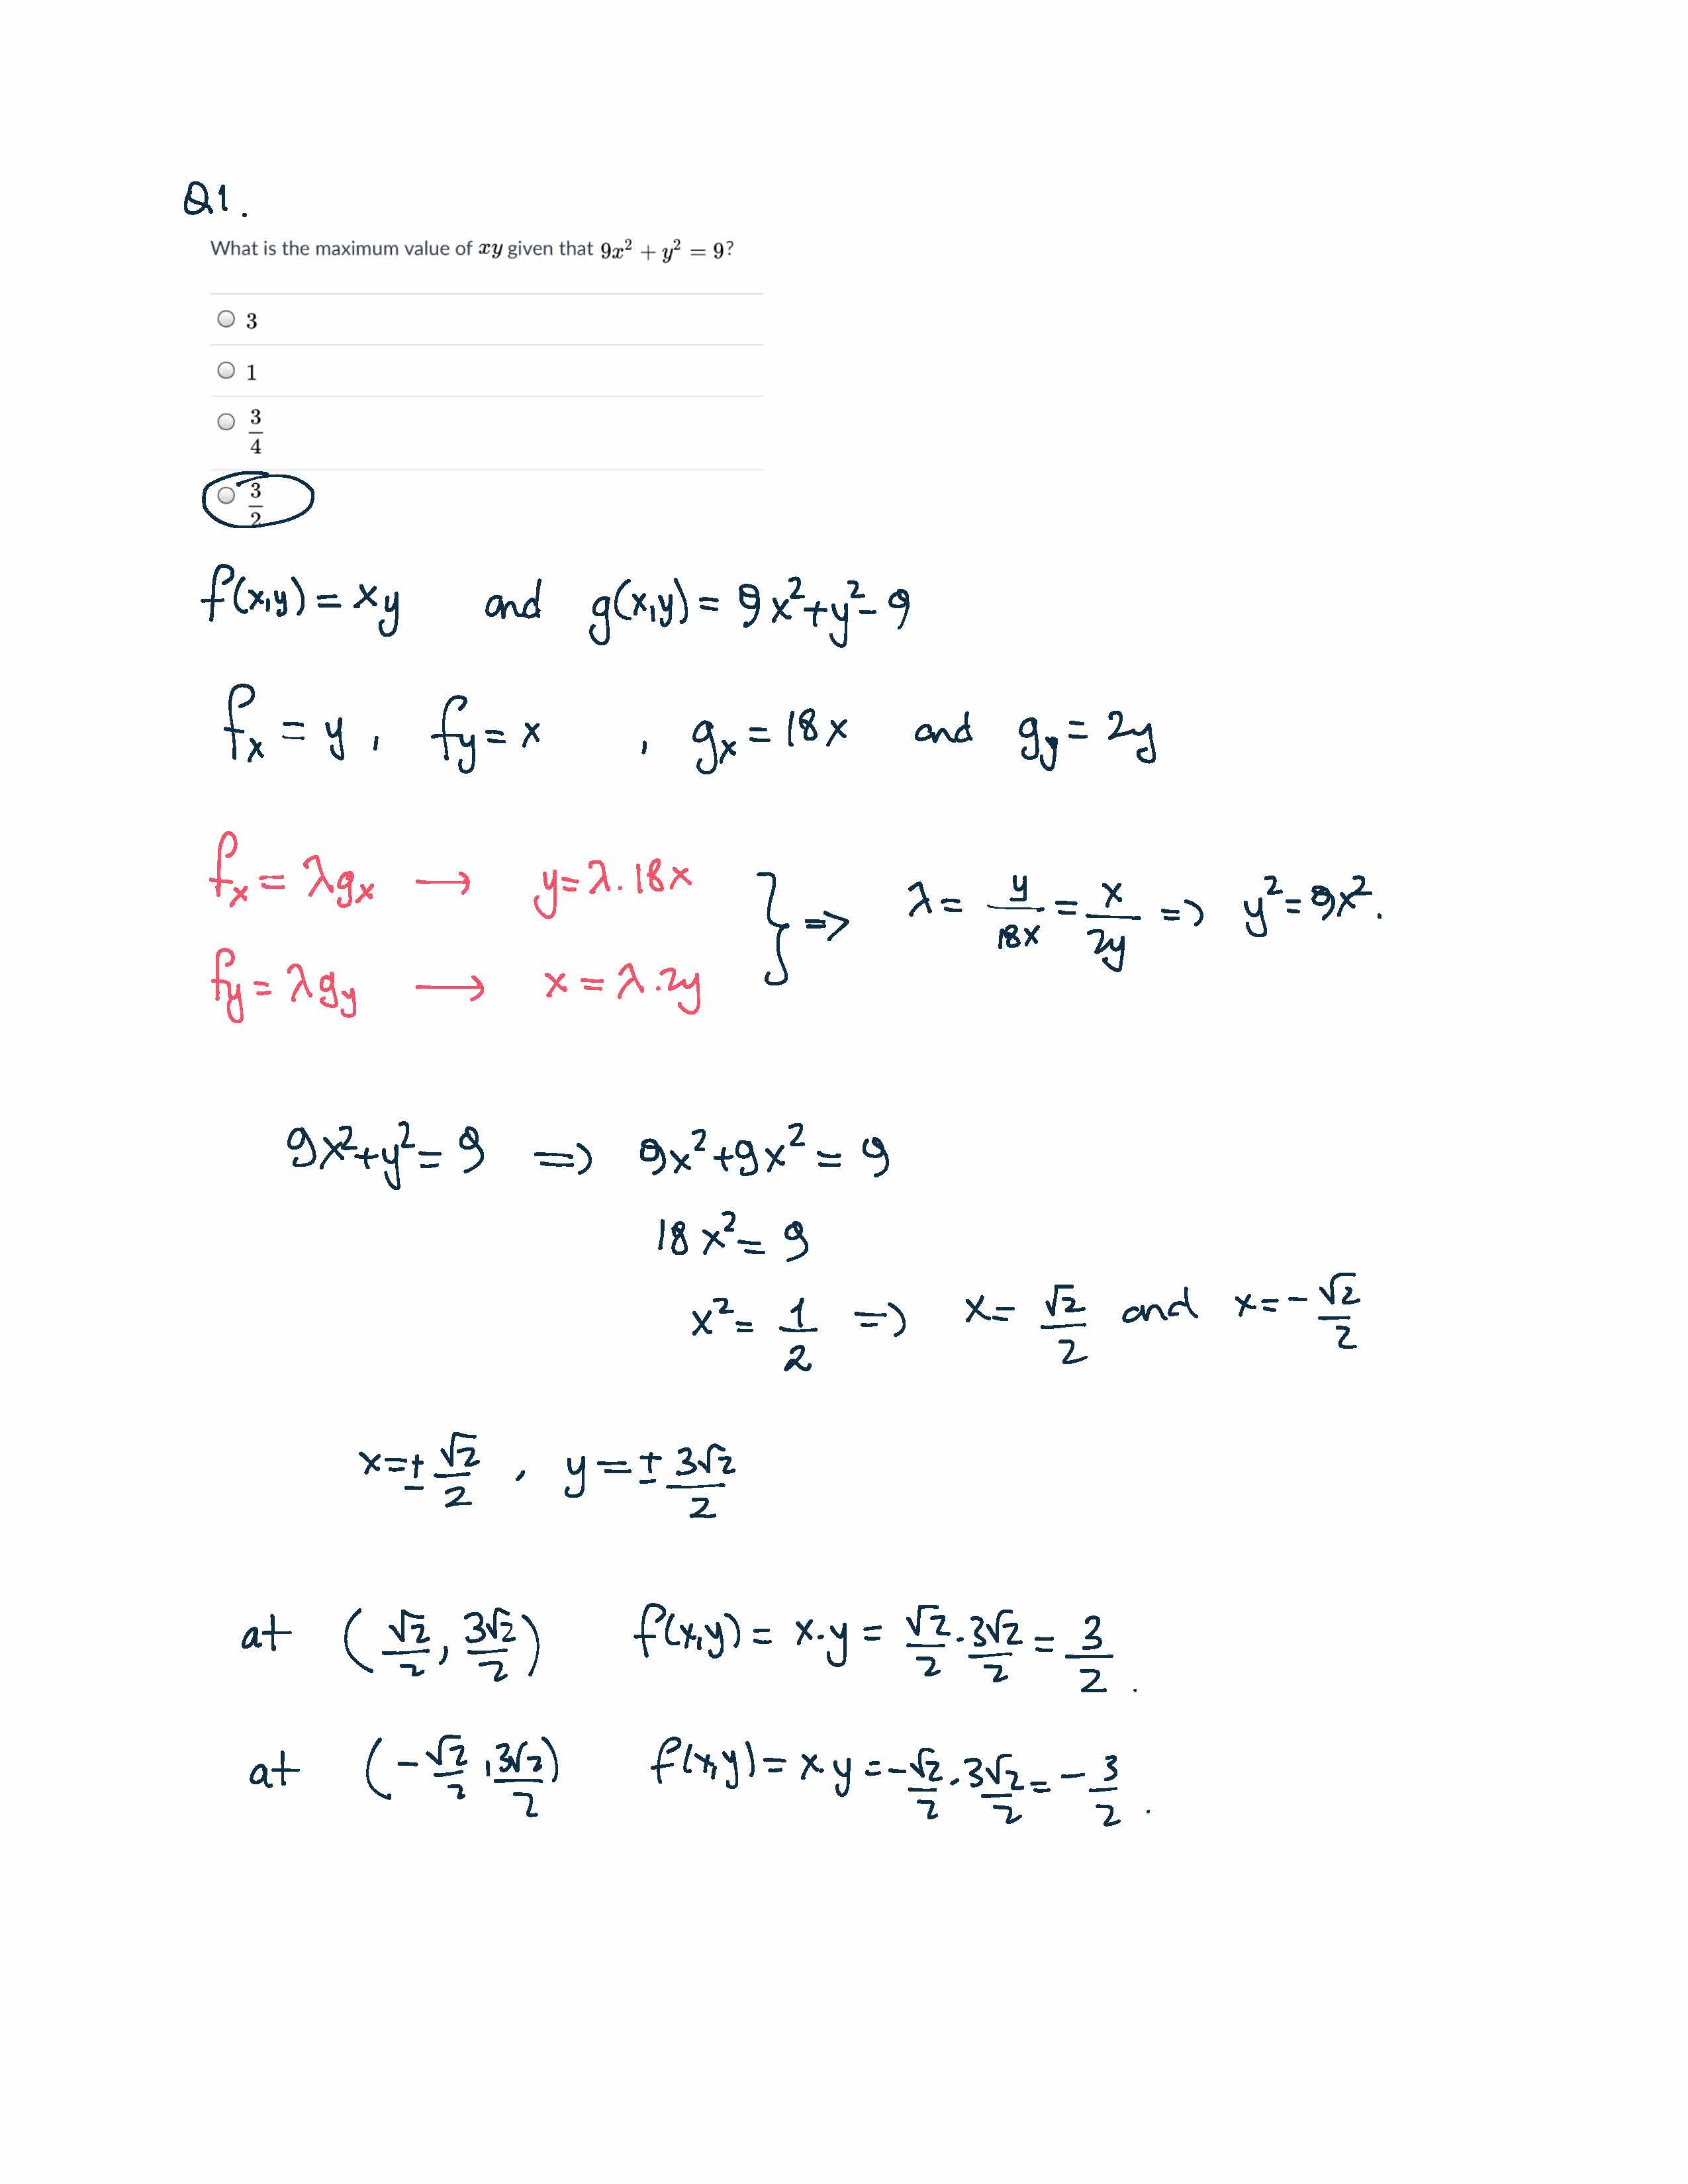 Q1.
What is the maximum value of xy given that 9x² + y² = 9?
3
1
3/4
3/2
f(x,y) = xy and g(x,y) = 9x²+y²-9
fx = y , fy = x , gx = 18x and gy = 2y
fx = λgx → y = λ.18x
fy = λgy → x = λ.2y
} => λ = y/18x = x/2y => y² = 9x².
9x²+y² = 9 => 9x²+9x² = 9
18x² = 9
x² = 1/2 => x = √2/2 and x = -√2/2
x = ±√2/2 , y = ±3√2/2
at (√2/2, 3√2/2) f(x,y) = x.y = √2/2 . 3√2/2 = 3/2 .
at (-√2/2, 3√2/2) f(x,y) = x.y = -√2/2 . 3√2/2 = -3/2 .